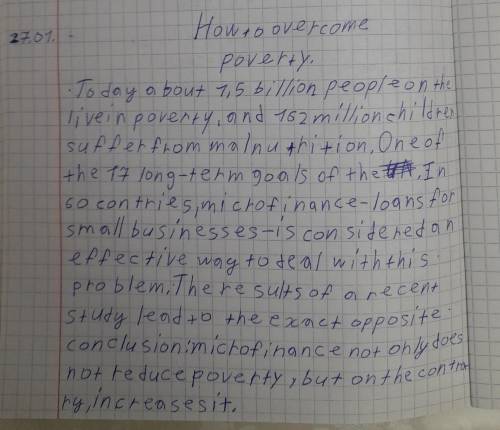 27.01.
How to overcome
poverty.
Today about 1,5 billion people on the
live in poverty, and 162 million children
suffer from malnutrition. One of
the 17 long-term goals of the. In
60 contries, microfinance-loans for
small businesses-is considered an
effective way to deal with this
problem. The results of a recent
study lead to the exact opposite
conclusion: microfinance not only does
not reduce poverty, but on the contra
ry, increases it.